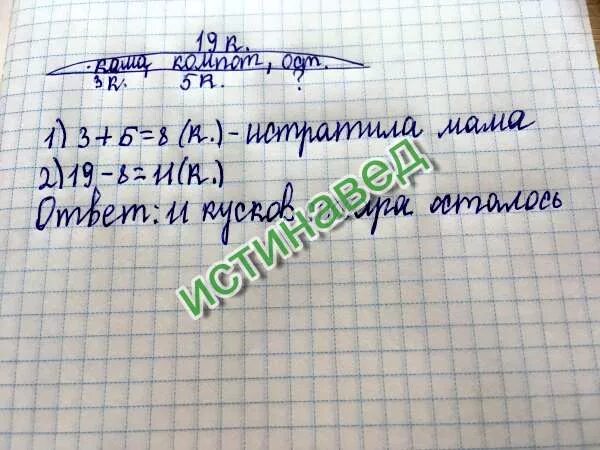 19 к.
каша, компот, ост.
3к. 5к. ?
1) 3+5=8 (к.) - истратила мама
2) 19-8=11 (к.)
Ответ: 11 кусков осталось
истинавед